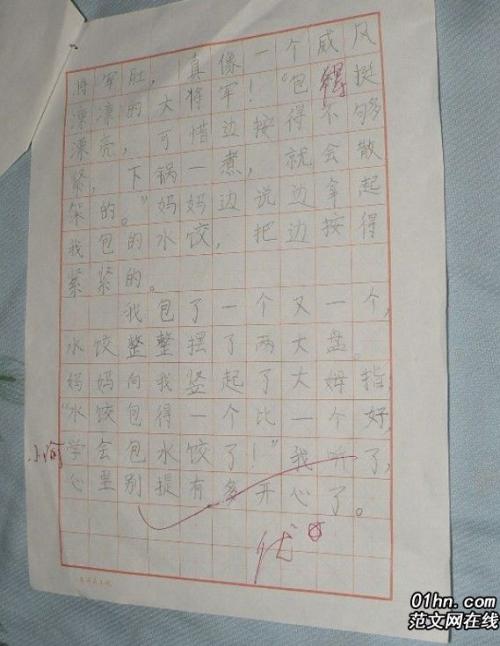 将军肚，真像一个威风
凛凛的大将军！“包得挺
漂亮，可惜边按得不够
紧，下锅一煮，就会散
架的。”妈妈边说边拿起
我包的水饺，把边按得
紧紧的。
我包了一个又一个，
水饺整整摆了两大盘。
妈妈向我竖起了大姆指：
“水饺包得一个比一个好，
学会包水饺了！”我听了，
心里别提有多开心了。
优
01hn.com
范文网在线